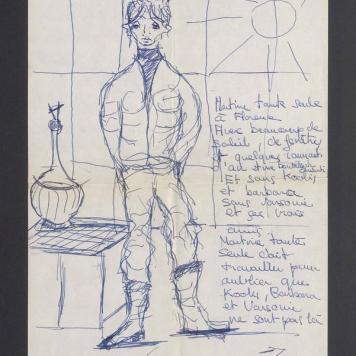 Martine toute seule
à Florence
Avec beaucoup de
soleil, de fenêtres
et quelques
d'un bouteille
Et sans Kooky
et barbara
sans
et ses vrais
amis
Martine toute
seule c'est
travailler pour
oublier que
Kooky, Barbara
et
ne sont pas là